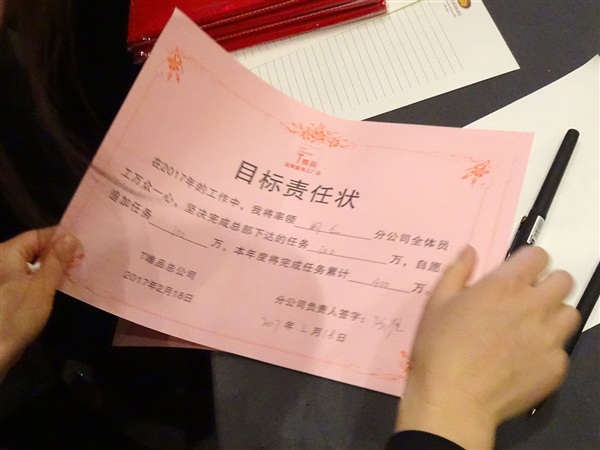 T唯品
目标责任状
在2017年的工作中，我将率领 分公司全体员
工万众一心，坚决完成总部下达的任务 万，自愿
追加任务 万，本年度将完成任务累计 400 万。
T唯品总公司
2017年2月18日
分公司负责人签字：
2017年2月18日